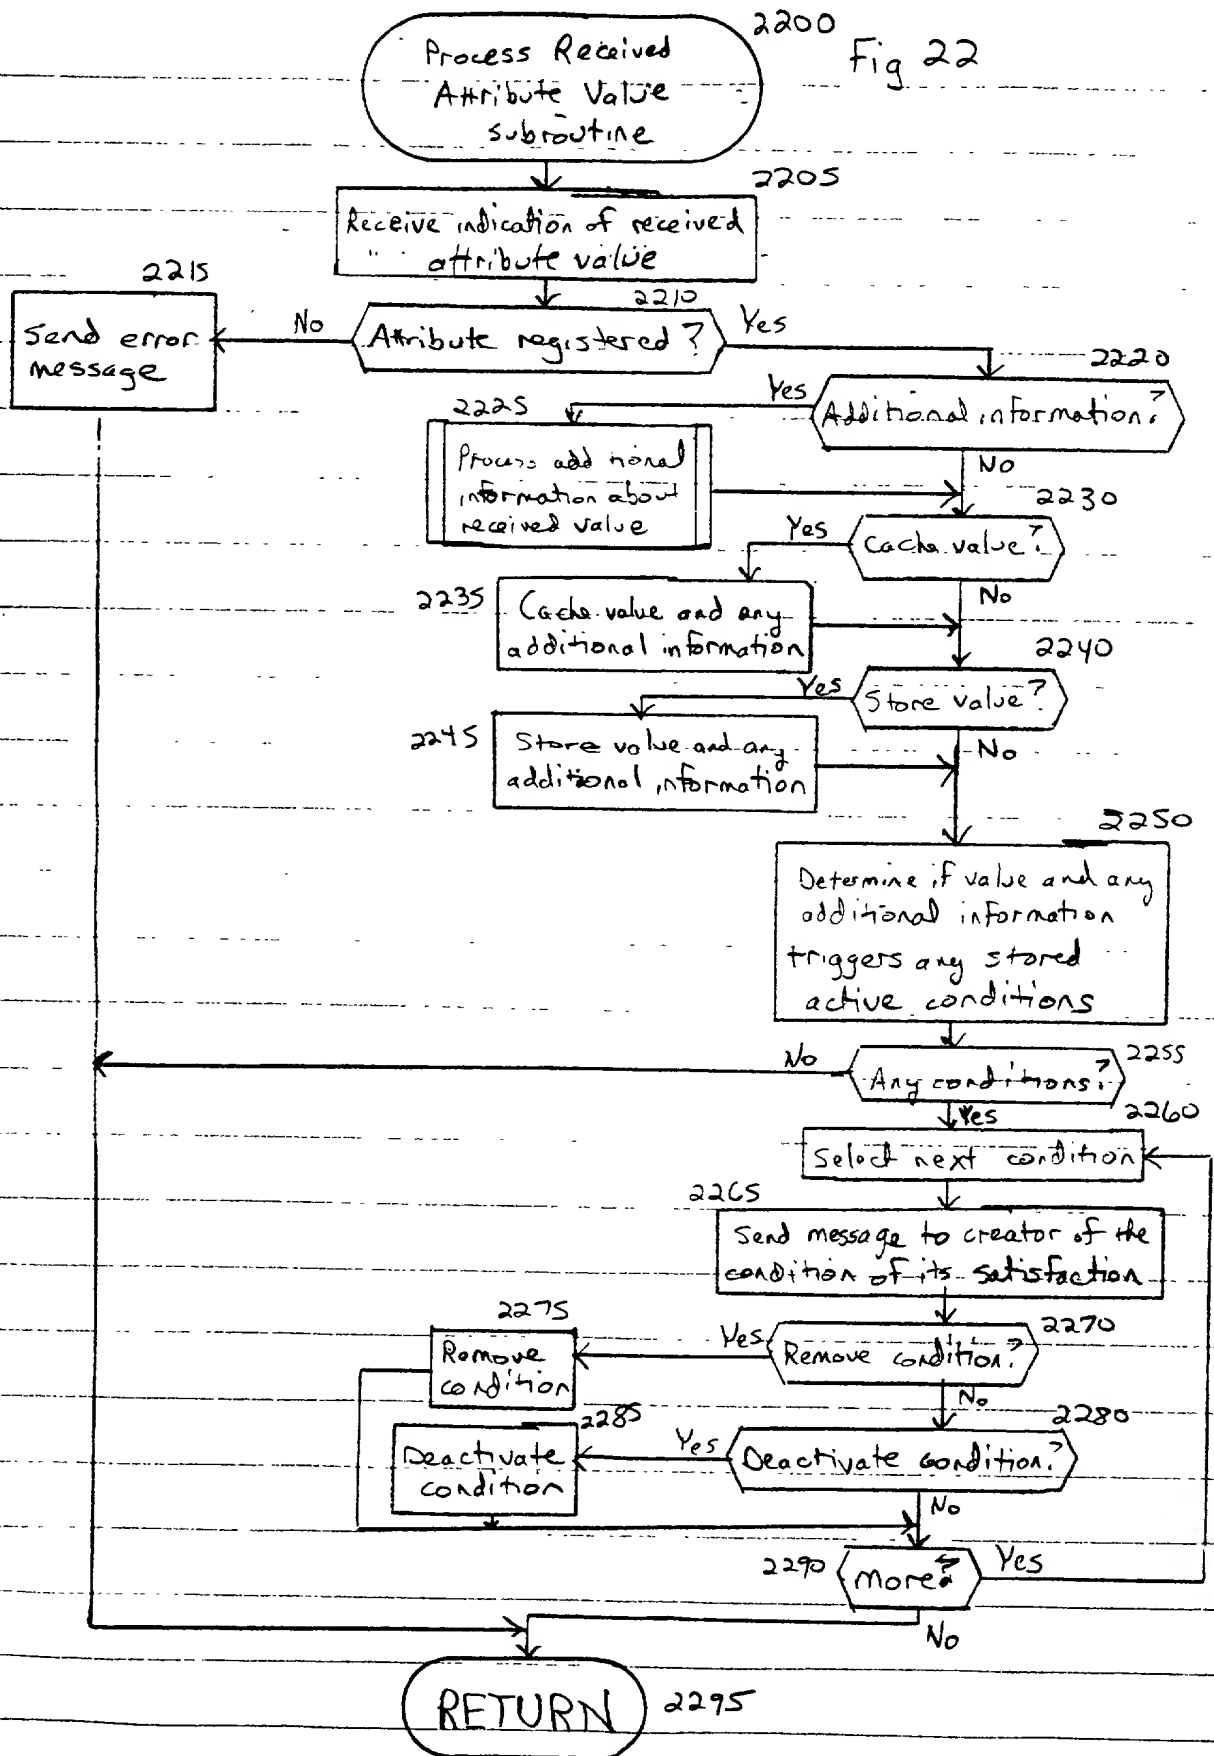 2200
Fig 22
Process Received
Attribute Value
subroutine
2205
Receive indication of received
attribute value
2215
2210
Send error
message
No
Attribute registered?
Yes
2220
Yes
Additional information?
2225
No
Process additional
information about
received value
2230
Yes
Cache value?
No
2235
Cache value and any
additional information
2240
Yes
Store value?
No
2245
Store value and any
additional information
2250
Determine if value and any
additional information
triggers any stored
active conditions
2255
No
Any conditions?
Yes
2260
Select next condition
2265
Send message to creator of the
condition of its satisfaction
2275
2270
Yes
Remove condition?
Remove
condition
No
2285
2280
Yes
Deactivate condition?
Deactivate
condition
No
2290
More?
Yes
No
RETURN
2295